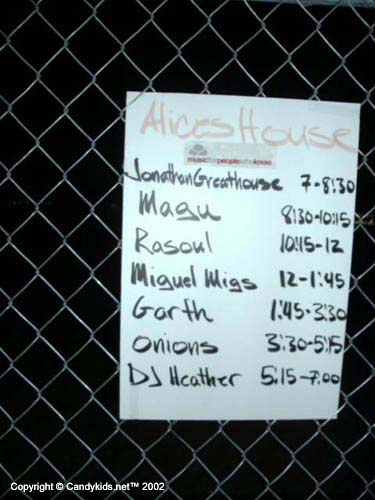 Alices House
musicforpeoplewhoknow
Jonathan Greathouse 7-8:30
Magu 8:30-10:15
Rasoul 10:15-12
Miguel Migs 12-1:45
Garth 1:45-3:30
Onions 3:30-5:15
DJ Heather 5:15-7:00
Copyright © Candykids.net™ 2002